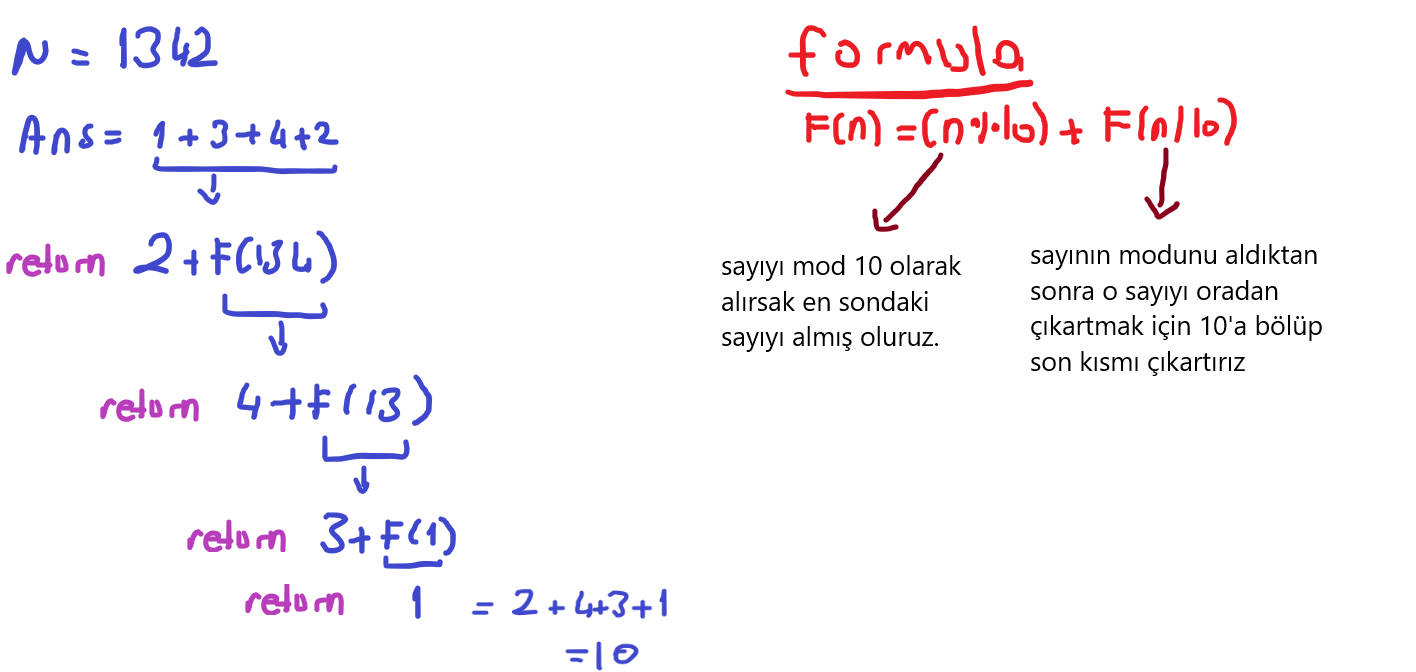 N = 1342
Ans = 1+3+4+2
return 2+F(134)
return 4+F(13)
return 3+F(1)
return 1 = 2+4+3+1
=10
formula
F(n) = (n%10) + F(n/10)
sayıyı mod 10 olarak
alırsak en sondaki
sayıyı almış oluruz.
sayının modunu aldıktan
sonra o sayıyı oradan
çıkartmak için 10'a bölüp
son kısmı çıkartırız